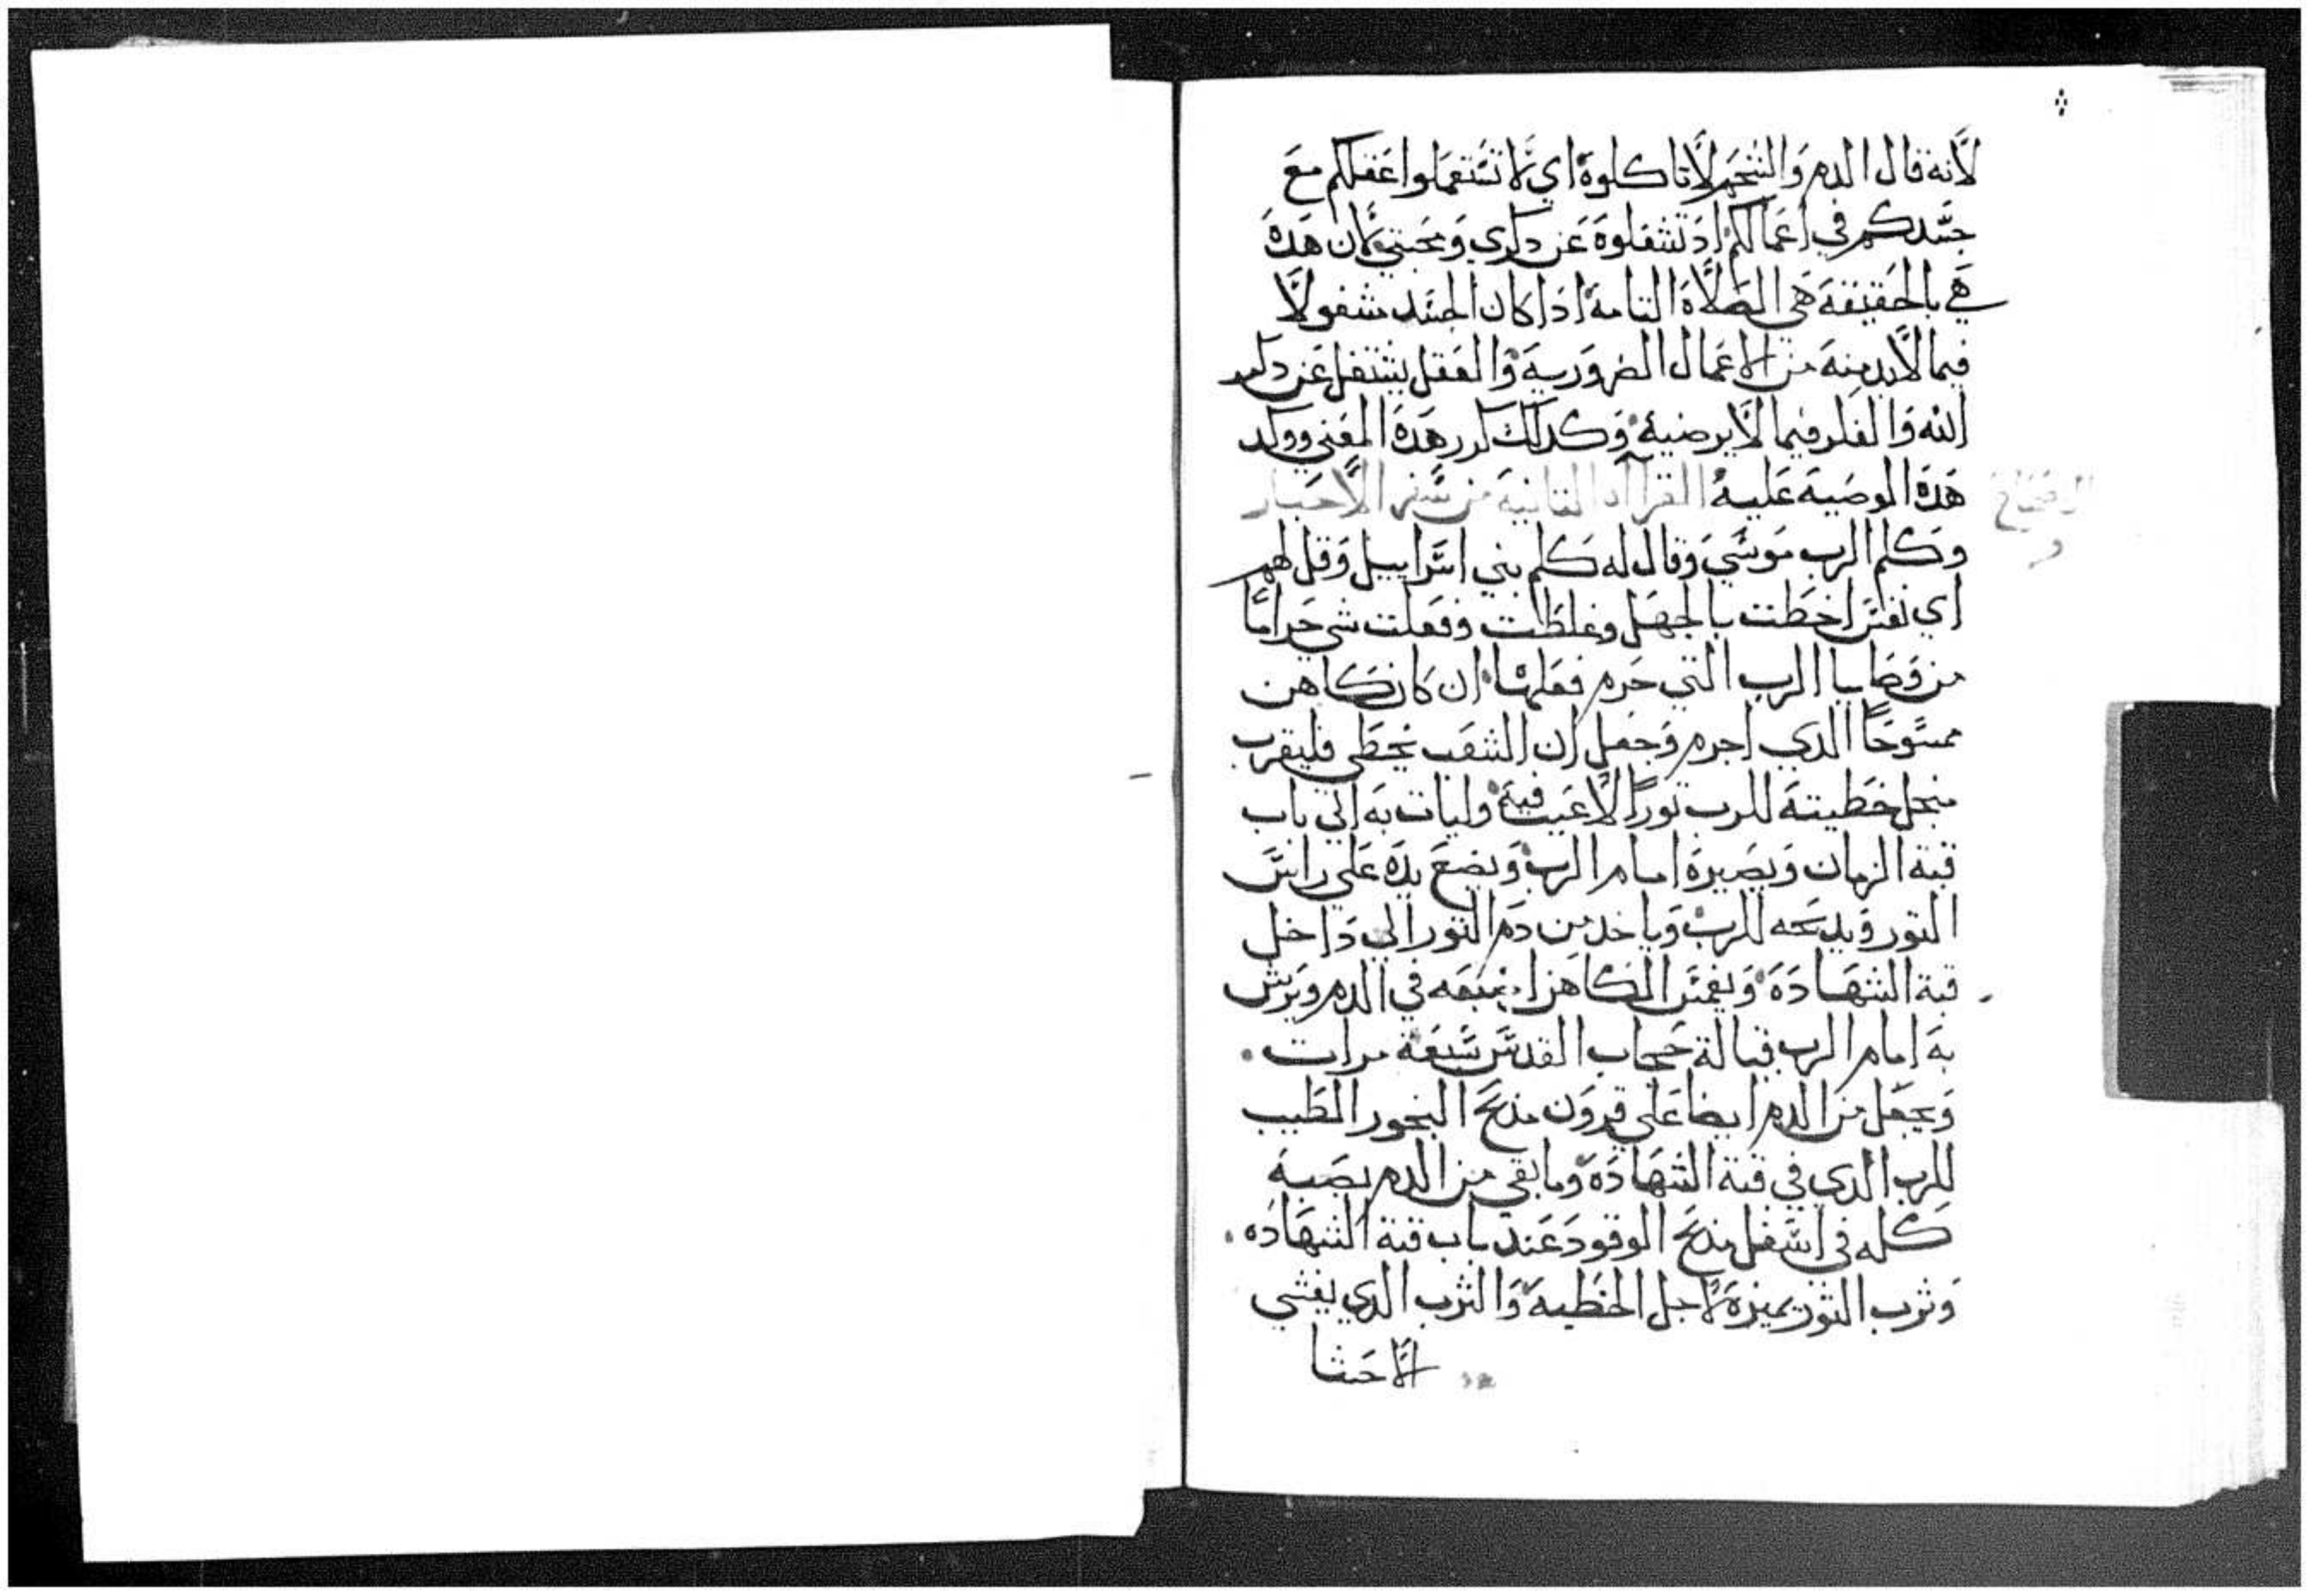 لأنه قال الدم والشحم لا تاكلوه اي لا تستعملوا عقلكم مع
جسدكم في اعمالكم اد تشغلوه عن دكري ومحبتي لان هده
هي بالحقيقة هي الصلاة التامة ادا كان الجسد مشغولاً
فيما لابد منه من الاعمال الضرورية والعقل يشتغل عن دكر
الله والفكر فيما لا يرضيه وكدلك كرر هده المعني ووكد
هده الوصية عليه القراآه الثانية من سفر الأحبار
الاصحاح
وكلم الرب موسي وقال له كلم بني اسراييل وقل لهم
اي نفس اخطت بالجهل وغلطت وفعلت شي حراماً
من وصايا الرب التي حرم فعلها ان كان كاهن
ممسوحاً الدي اجرم وجعل ان الشعب يخطي فليقرب
منجل خطيته للرب توراً لا عيب فيه وليات به الي باب
قبة الزمان ويصيره امام الرب ويضع يده علي راس
التور ويدبحه للرب وياخد من دم التور الي داخل
قبة الشهادة ويغمس الكاهن اصبعه في الدم ويرش
به امام الرب قبالة حجاب القدس سبعة مرات
ويجعل من الدم ايضا علي قرون مدبح البخور الطيب
للرب الدي في قبة الشهادة وما بقي من الدم يصبه
كله في اسفل مدبح الوقود عند باب قبة الشهاده
وثرب التور يميزه لاجل الخطية والثرب الدي يغشي
الاحشا